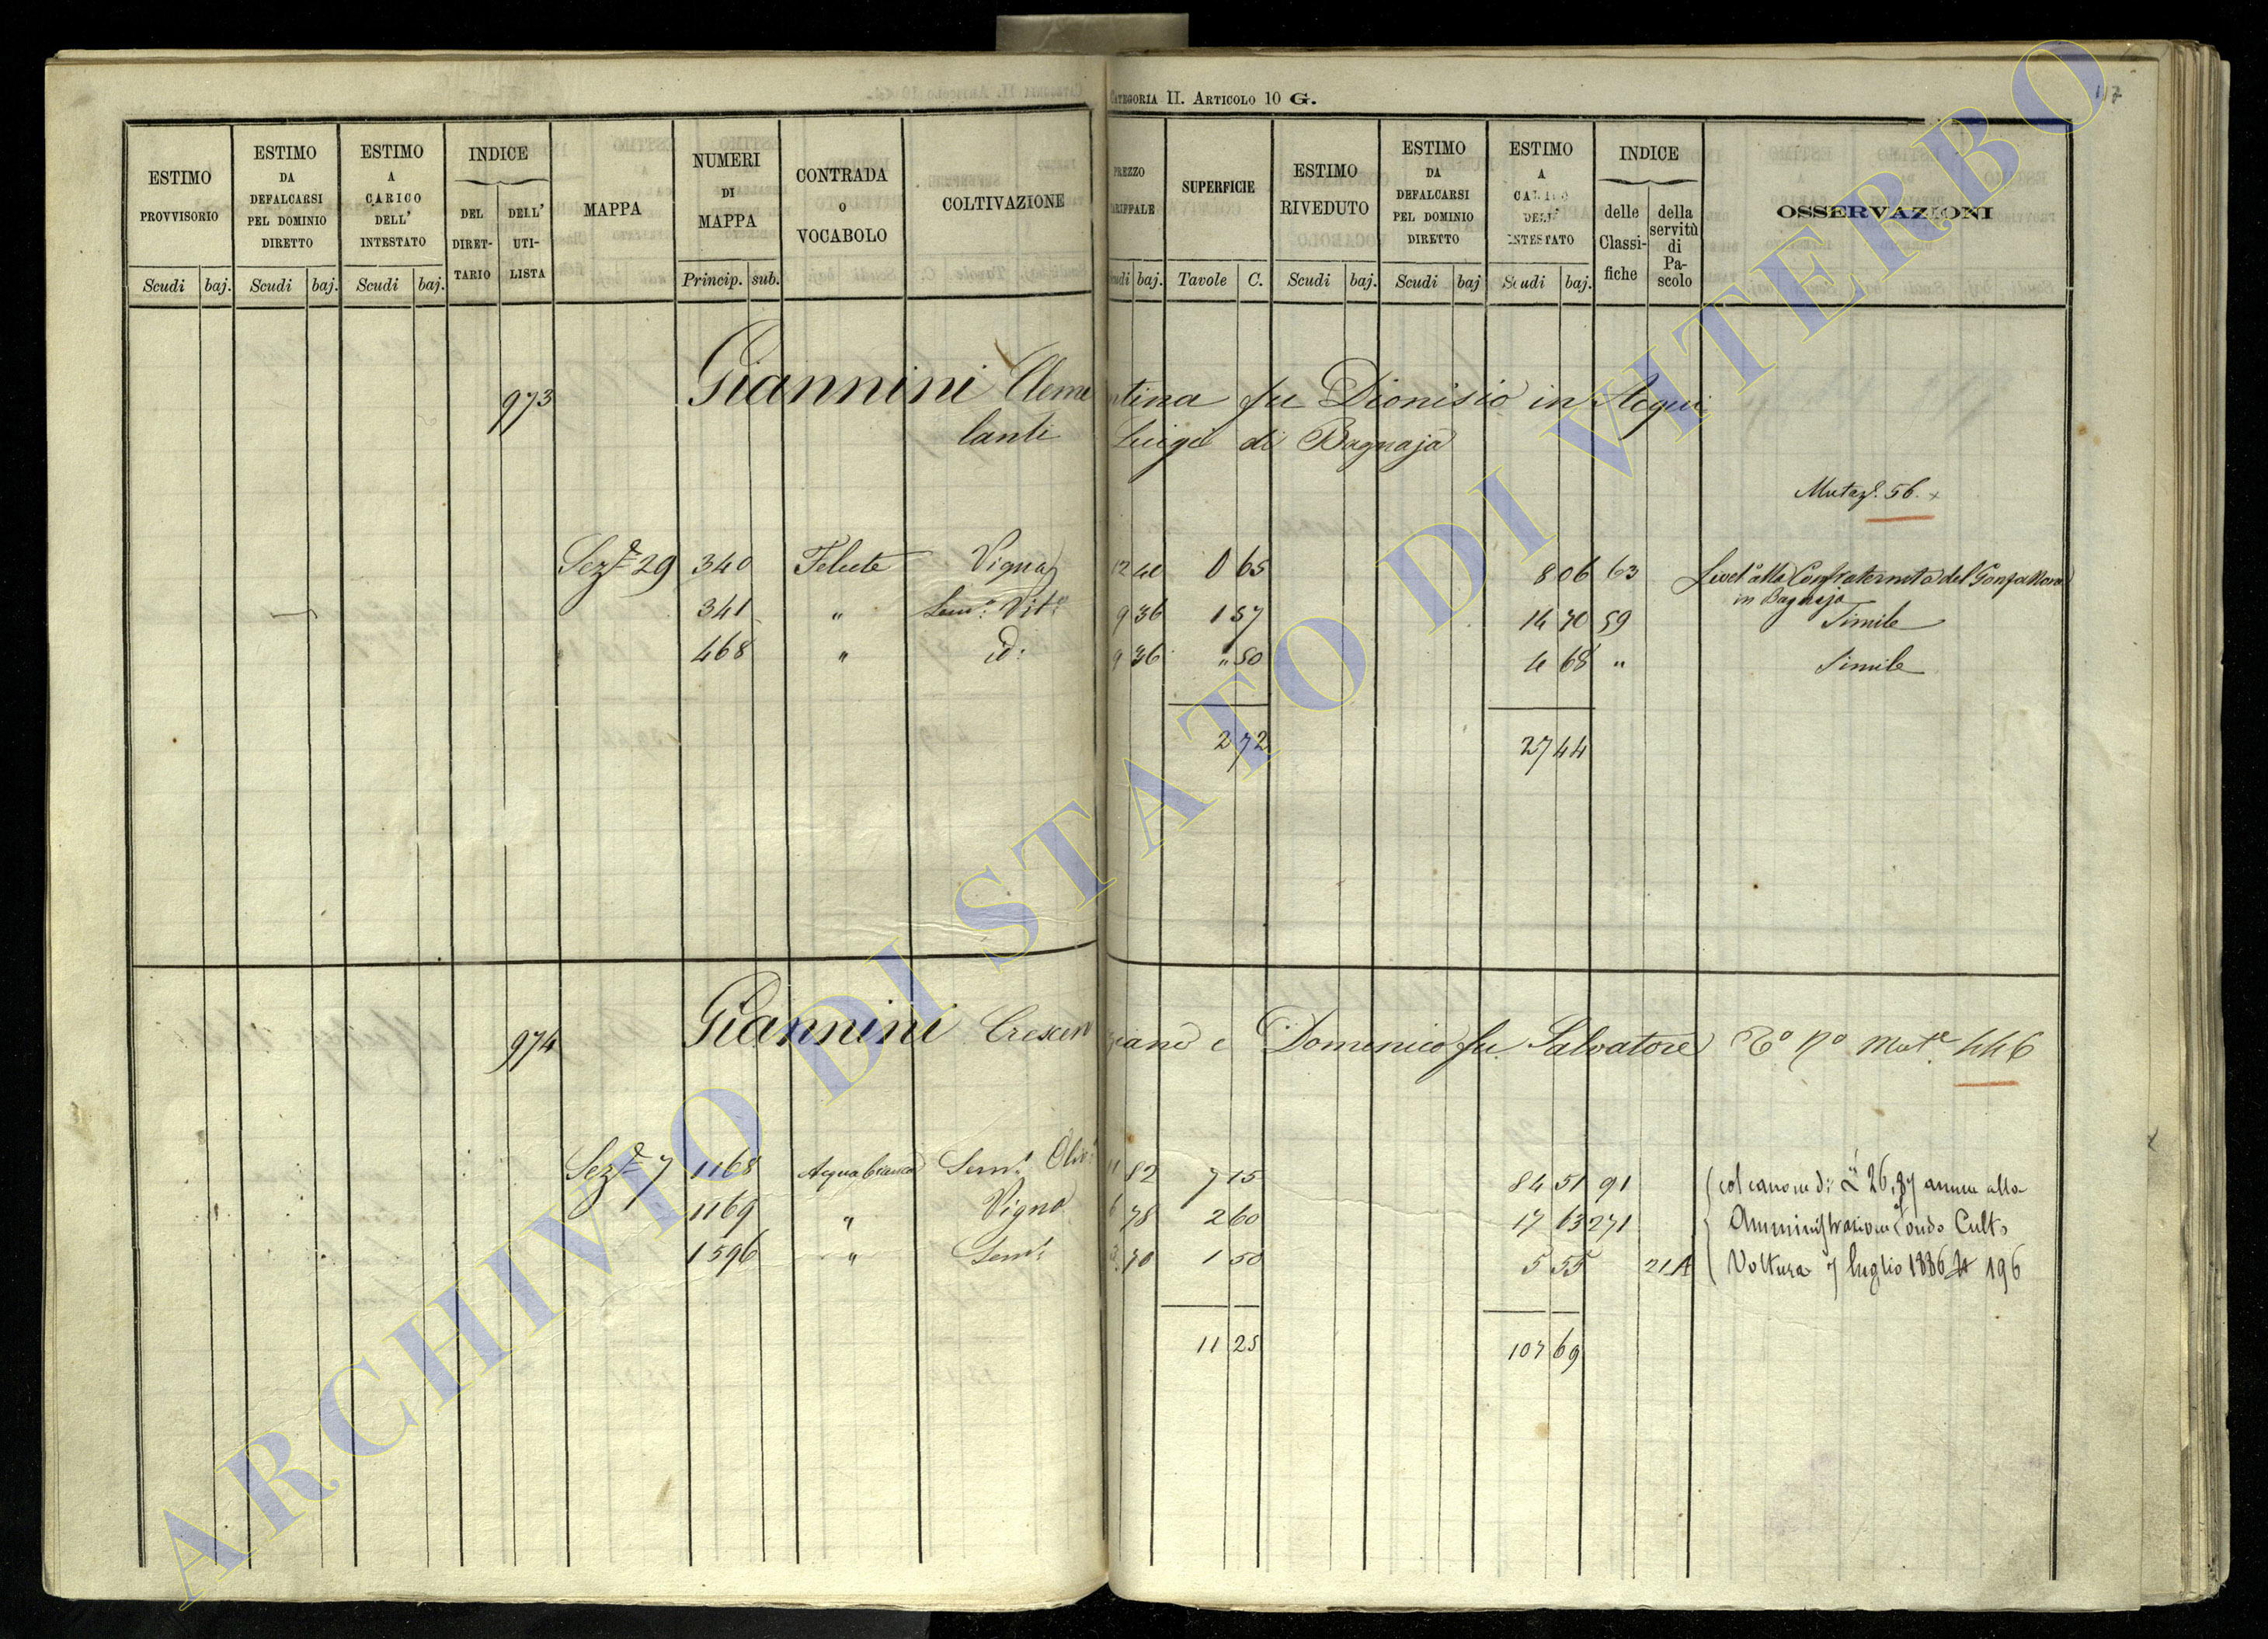 CATEGORIA II. ARTICOLO 10 G.
117
ESTIMO PROVVISORIO
ESTIMO DA DEFALCARSI PEL DOMINIO DIRETTO
ESTIMO A CARICO DELL' INTESTATO
INDICE
DEL DIRETTARIO
DELL' UTILISTA
MAPPA
NUMERI DI MAPPA
CONTRADA O VOCABOLO
COLTIVAZIONE
PREZZO TARIFFALE
SUPERFICIE
ESTIMO RIVEDUTO
ESTIMO DA DEFALCARSI PEL DOMINIO DIRETTO
ESTIMO A CARICO DELL' INTESTATO
INDICE
delle Classifiche
della servitù di Pascolo
OSSERVAZIONI
Scudi baj. Scudi baj. Scudi baj. Princip. sub. Scudi baj. Tavole C. Scudi baj. Scudi baj Scudi baj.
973 Giannini Clementina fu Dionisio in Acqui
lanti Luigi di Bagnaja
Mutaz. 56.
Sez.e 29 340 Felcete Vigna 12 40 0 65 8 06 63 Livell.a alla Confraternita del Gonfalone
in Bagnaja
341 " Sem.o Vit.o 9 36 1 57 14 70 59 Simile
468 " id: 9 36 " 50 4 68 " Simile
2 72 27 44
974 Giannini Crescenziano e Domenico fu Salvatore Mut.e 446
Sez.e 7 1168 Acquabianca Sem.o Oliv.o 11 82 7 15 84 51 91 col canone di £ 26,87 annue alla
1169 " Vigna 6 78 2 60 17 63 271 Amministrazione Fondo Culto
1596 " Sem.o 3 70 1 50 5 55 21A Voltura 7 luglio 1886 N 196
11 25 107 69
ARCHIVIO DI STATO DI VITERBO